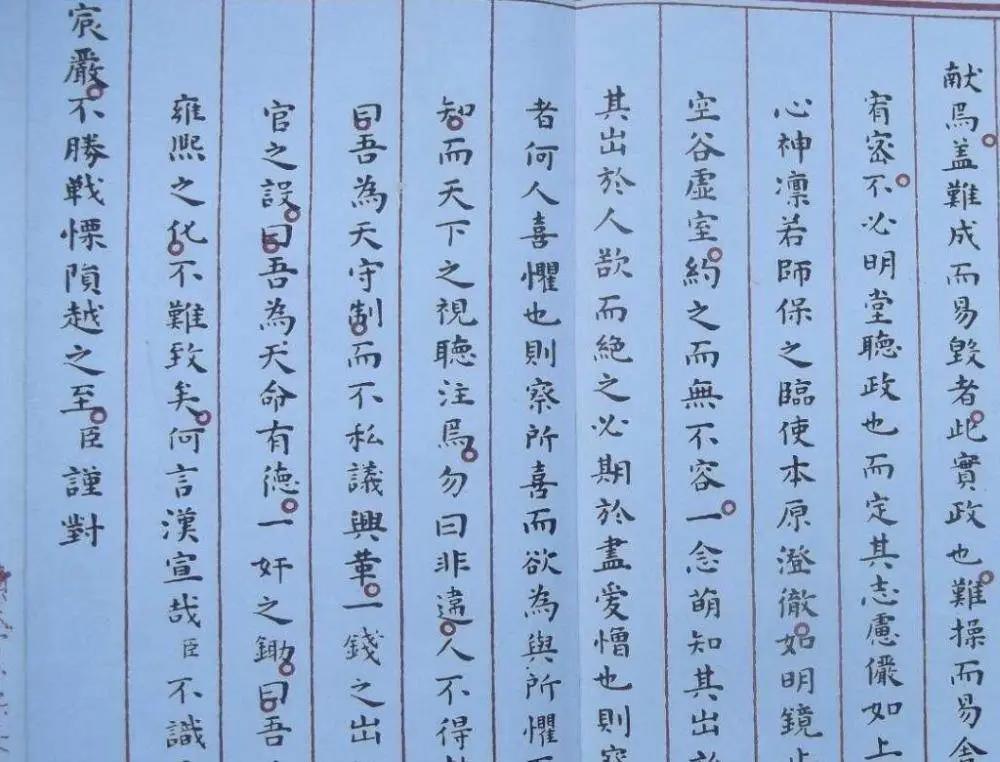 献焉盖難成而易毀者此實政也難操而易舍
宥密不必明堂聽政也而定其志慮儼如上
心神凜若師保之臨使本原澄徹如明鏡止
空谷虛室約之而無不容一念萌知其出於
其出於人欲而絕之必期於盡愛憎也則察
者何人喜懼也則察所喜而欲為與所懼
知而天下之視聽注焉勿曰非違人不得
曰吾為天守制而不私議興革一錢之出
官之設曰吾為天命有德一奸之鋤曰吾
雍熙之化不難致矣何言漢宣哉臣不識
宸嚴不勝戰慄隕越之至臣謹對